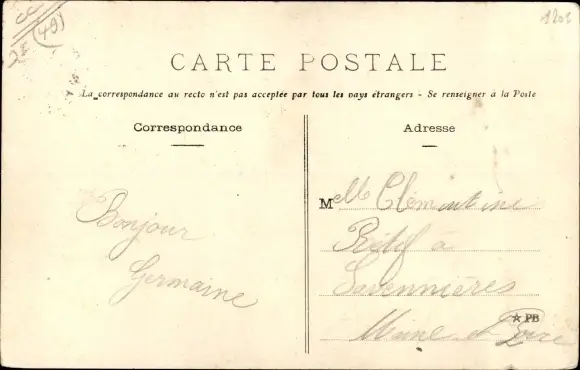 (49)
1203
CARTE POSTALE
La correspondance au recto n'est pas acceptée par tous les pays étrangers - Se renseigner à la Poste
Correspondance
Adresse
Bonjour
Germaine
Melle Clémentine
Rétif à
Savennières
Maine et Loire
PB